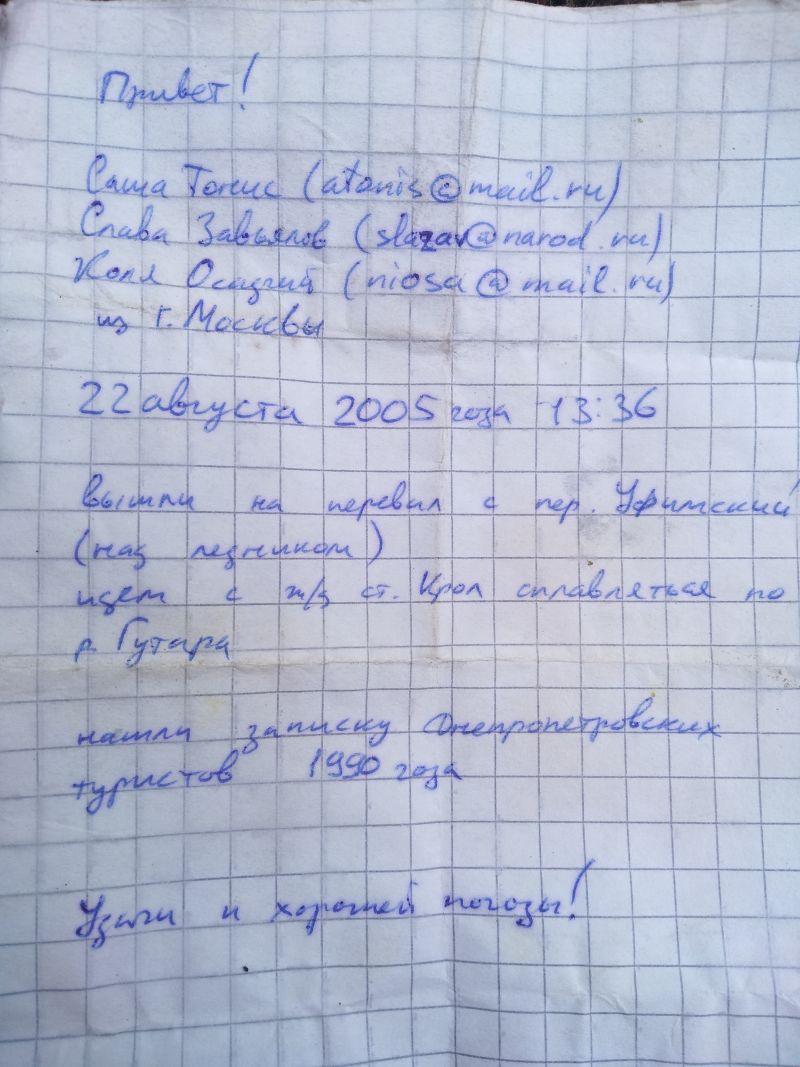 Привет!
Саша Тонис (atonis@mail.ru)
Слава Завьялов (slazav@narod.ru)
Коля Осадчий (niosa@mail.ru)
из г. Москвы
22 августа 2005 года 13:36
вышли на перевал с пер. Уфимский
(над ледником)
идем с ж/д ст. Крол сплавляться по
р. Гутара
нашли записку Днепропетровских
туристов 1990 года
Удачи и хорошей погоды!